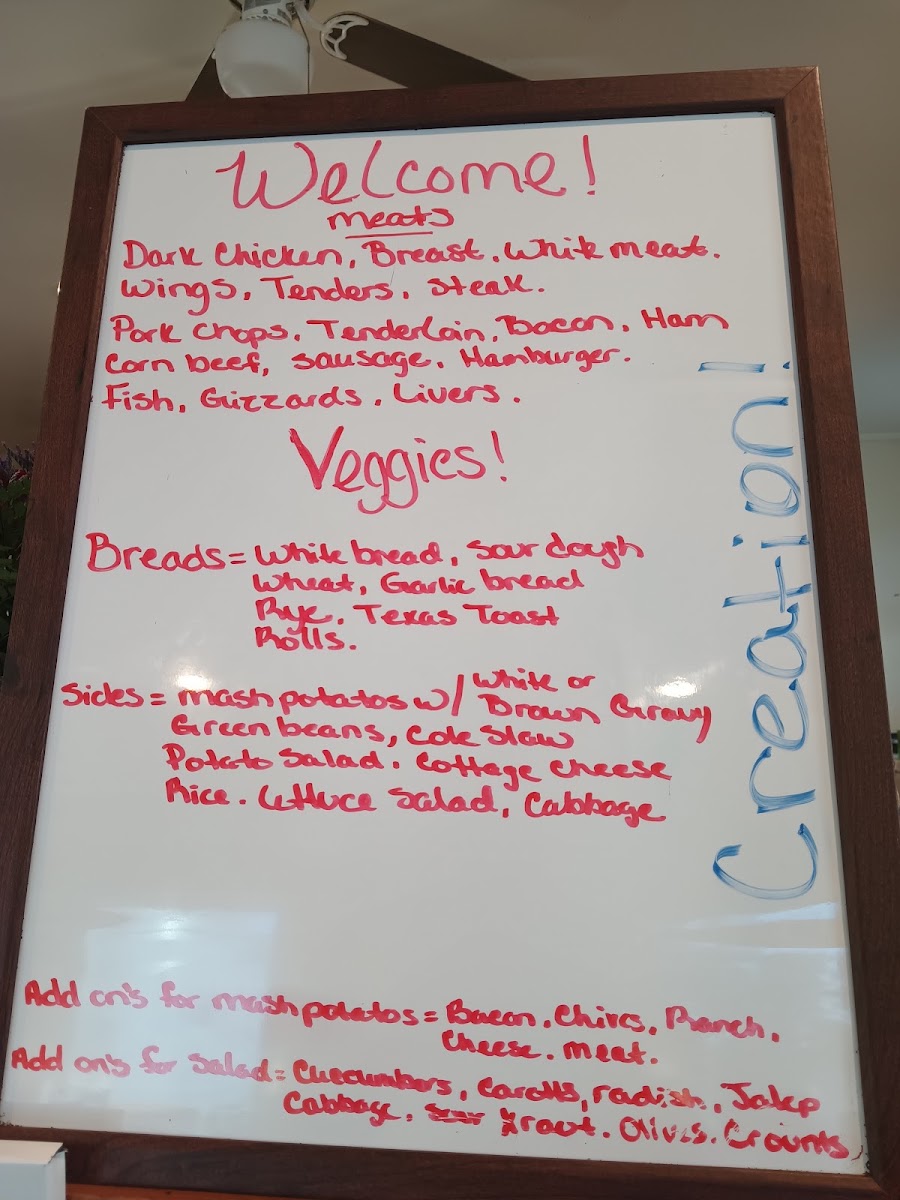 Welcome!
meats
Dark Chicken, Breast, White meat.
Wings, Tenders, Steak.
Pork Chops, Tenderloin, Bacon, Ham
Corn beef, Sausage, Hamburger.
Fish, Gizzards, Livers.
Veggies!
Breads = White bread, Sour dough
Wheat, Garlic bread
Rye, Texas Toast
Rolls.
Sides = mash potatos w/ White or
Brown Gravy
Green beans, Cole Slaw
Potato Salad. Cottage Cheese
Rice. Lettuce Salad, Cabbage
Add on's for mash potatos = Bacon, Chives, Ranch,
Cheese. meat.
Add on's for Salad = Cucumbers, Carotts, radish, Jalep
Cabbage, root. Olives. Crounts
Creation!